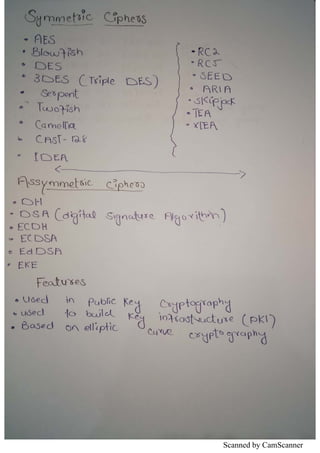 Symmetric Ciphers
• AES
• Blowfish
• DES
• 3DES (Triple DES)
• Serpent
• Twofish
• Camellia
• CAST-128
• IDEA
• RC2
• RC5
• SEED
• ARIA
• Skipjack
• TEA
• XTEA
Assymmetric ciphers
• DH
• DSA (digital Signature Algorithm)
• ECDH
• ECDSA
• EdDSA
• EKE
Features
• Used in Public Key Cryptography
• used to build Key infrastructure (PKI)
• Based on elliptic curve cryptography
Scanned by CamScanner